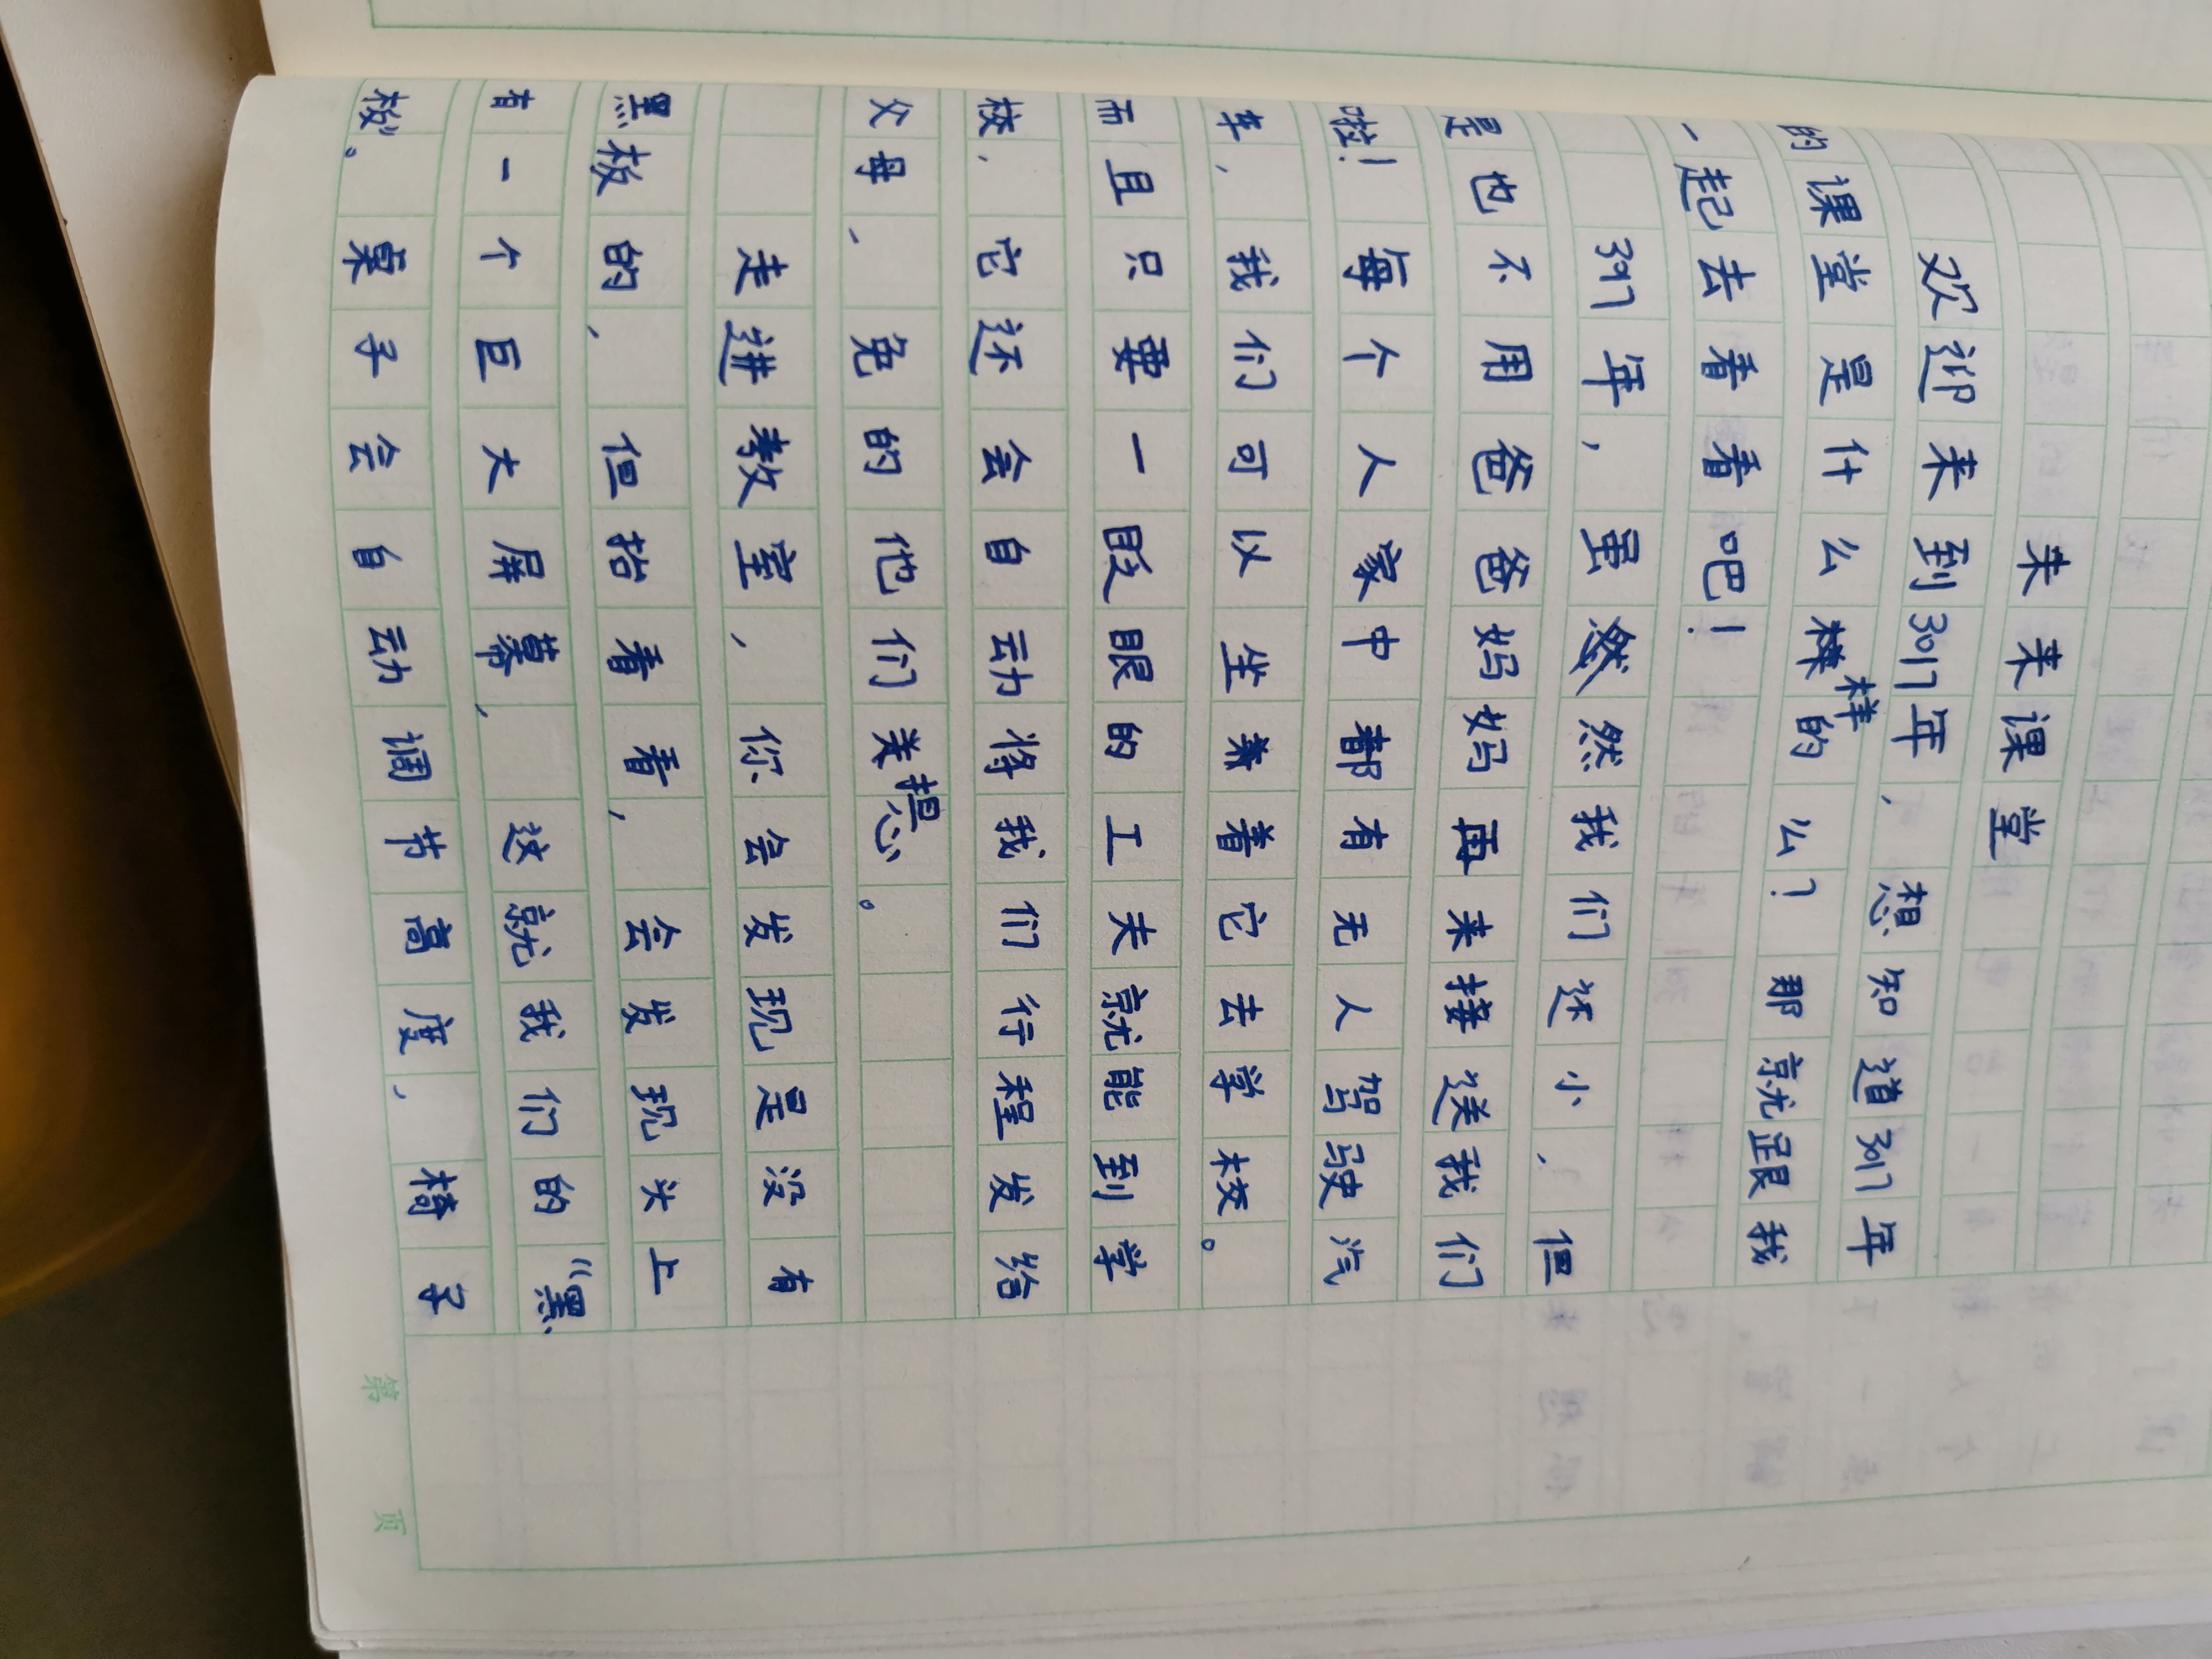 未来课堂
欢迎来到3017年，想知道3017年
的课堂是什么样的么？那就跟我
一起去看看吧！
3017年，虽然我们还小，但
是也不用爸爸妈妈再来接送我们
啦！每个人家中都有无人驾驶汽
车，我们可以坐着它去学校。
而且只要一眨眼的工夫就能到学
校，它还会自动将我们行程发给
父母，免的他们担心。
走进教室，你会发现是没有
黑板的，但抬看看，会发现头上
有一个巨大屏幕，这就我们的“黑
板”。桌子会自动调节高度，椅子
第 页